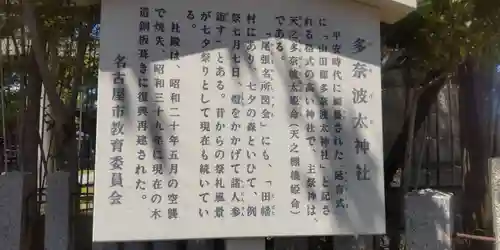 多奈波太神社
平安時代に編纂された「延喜式」
に「山田郡多奈波太神社」と記さ
れる格式の高い神社で、主祭神は、
天之多奈波太姫命(天之棚機姫命)
である。
「尾張名所図会」にも、「田幡
村にあり、七夕の森といひて、例
祭七月七日、燈をかかげて諸人参
詣す」とある。昔からの祭礼風景
が七夕祭りとして現在も続いてい
る。
社殿は、昭和二十年五月の空襲
で焼失、昭和三十九年に現在の木
造銅板葺きに復興再建された。
名古屋市教育委員会